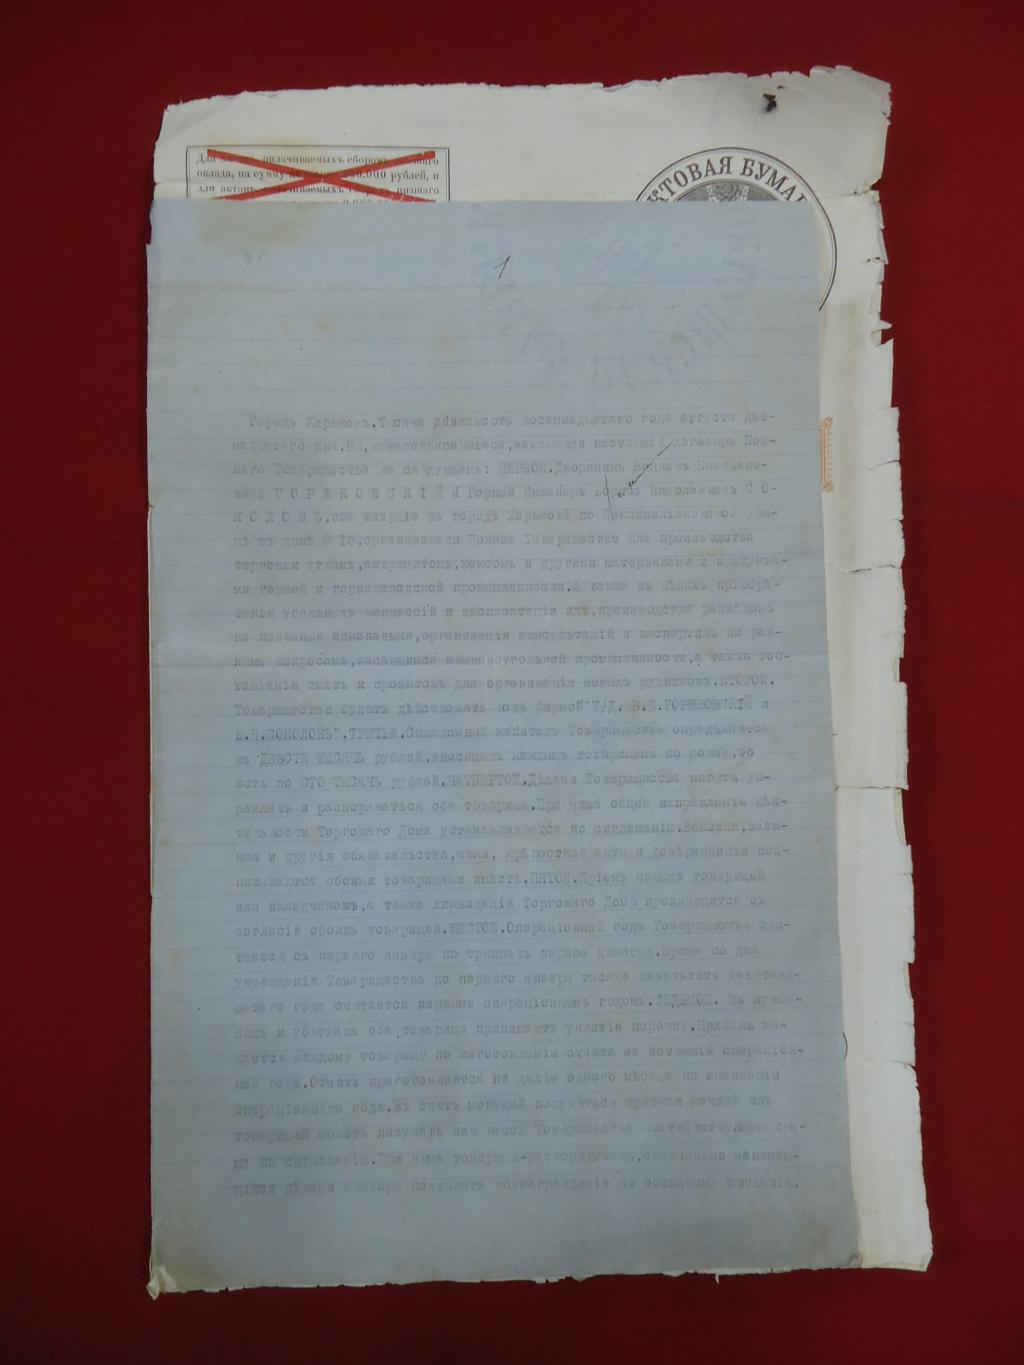 Для актовъ, оплачиваемыхъ сборомъ
оклада, на сумму 300.000 рублей, и
для актовъ, оплачиваемыхъ сборомъ низшаго
КТОВАЯ БУМА
1
Городъ Харьковъ.Тысяча девятьсотъ восемнадцатаго года августа двѣ-
надцатаго дня.Мы,нижеподписавшіеся,заключили настоящій договоръ Пол-
наго Товарищества въ слѣдующемъ: ПЕРВОЕ.Дворянинъ Емельяно-
вичъ ГОРЖКОВСКІЙ и Горный Инженеръ Борисъ Николаевичъ СО-
КОЛОВЪ,оба живущіе въ городѣ Харьковѣ по Максимиліановской ули-
цѣ въ домѣ № 18,организовали Полное Товарищество для производства
торговли углемъ,антрацитомъ,коксомъ и другими матерьялами и продукта-
ми горной и горнозаводской промышленности.А также въ цѣляхъ пріобрѣ-
тенія угольныхъ концессій и эксплоатаціи ихъ,производства развѣдокъ
на полезныя ископаемыя,организація консультацій и экспертизъ по раз-
нымъ вопросамъ,касающимся каменноугольной промышленности,а также сос-
тавленіе смѣтъ и проэктовъ для организаціи новыхъ рудниковъ.ВТОРОЕ.
Товарищество будетъ дѣйствовать подъ фирмой"Т/Д. В.Е.ГОРЖКОВСКІЙ и
Б.Н.СОКОЛОВЪ".ТРЕТЬЕ.Складочный капиталъ Товарищества опредѣляется
въ ДВѢСТИ ТЫСЯЧЪ рублей,вносимыхъ каждымъ товарищемъ по ровну,то
есть по СТО ТЫСЯЧЪ рублей.ЧЕТВЕРТОЕ.Дѣлами Товарищества могутъ уп-
равлять и распоряжаться оба товарища.При чемъ общее направленіе дѣя-
тельности Торговаго Дома устанавливается по соглашенію.Векселя,заем-
ныя и другія обязательства,чеки, крѣпостные акты и довѣренности под-
писываются обоими товарищами вмѣстѣ.ПЯТОЕ.Пріемъ новыхъ товарищей
или вкладчиковъ,а также ликвидація Торговаго Дома производится съ
согласія обоихъ товарищей.ШЕСТОЕ.Операціонный годъ Товарищества счи-
тается съ перваго января по тридцать первое декабря.Время со дня
учрежденія Товарищества до перваго января тысяча девятьсотъ девятнад-
цатаго года считается первымъ операціоннымъ годомъ.СЕДЬМОЕ. Въ прибы-
ляхъ и убыткахъ оба товарища принимаютъ участіе поровну.Прибыль вы-
дается каждому товарищу по изготовленіи отчета за истекшій операціон-
ный годъ.Отчетъ приготовляется не далѣе одного мѣсяца по окончаніи
операціоннаго года.Въ счетъ могущей получаться прибыли каждый изъ
товарищей можетъ получать изъ кассы Товарищества соотвѣтствующую сум-
му по соглашенію.При чемъ товарищъ-распорядитель,спеціально занимаю-
щійся дѣлами конторы получаетъ вознагражденіе по обоюдному согласію.